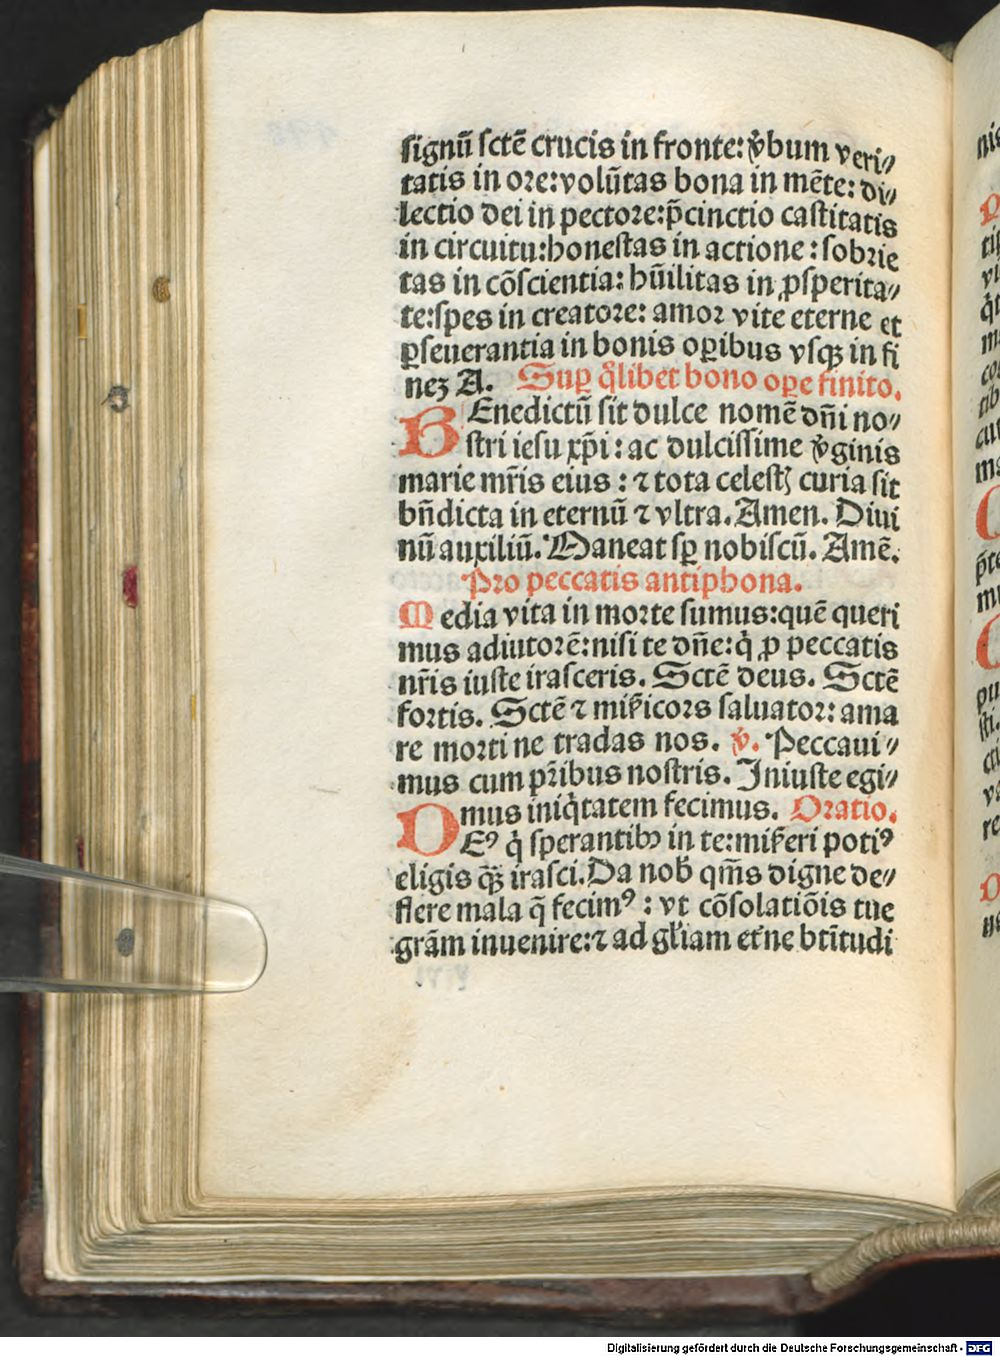 signū sctē crucis in fronte: v̄bum veri⸗
tatis in ore: volūtas bona in mēte: di⸗
lectio dei in pectore: p̄cinctio castitatis
in circuitu: honestas in actione: sobrie
tas in cōscientia: hūilitas in ꝓsperita⸗
te: spes in creatore: amor vite eterne et
ꝑseuerantia in bonis oꝑibus vsqꝫ in fi
neꝫ A. Suꝑ q̄libet bono oꝑe finito.
BEnedictū sit dulce nomē dn̄i no⸗
stri iesu xp̄i: ac dulcissime v̄ginis
marie mr̄is eius: ⁊ tota celestꝭ curia sit
bn̄dicta in eternū ⁊ vltra. Amen. Diui
nū auxiliū. Maneat sꝑ nobiscū. Amē.
Pro peccatis antiphona.
Media vita in morte sumus: quē queri
mus adiutorē: nisi te dn̄e: q̇ ꝓ peccatis
nr̄is iuste irasceris. Sctē deus. Sctē
fortis. Sctē ⁊ mis̄icors saluator: ama
re morti ne tradas nos. ℣. Peccaui⸗
mus cum pr̄ibus nostris. Iniuste egi⸗
mus iniq̇tatem fecimus. Oratio.
DEꝰ q̇ sperantibꝫ in te: mis̄eri potiꝰ
eligis qꝫ̄ irasci. Da nob̄ qm̄s digne de⸗
flere mala q̄ fecimꝰ: vt cōsolatiōis tue
grām inuenire: ⁊ ad gl̄iam et̄ne btītudi
Digitalisierung gefördert durch die Deutsche Forschungsgemeinschaft - DFG